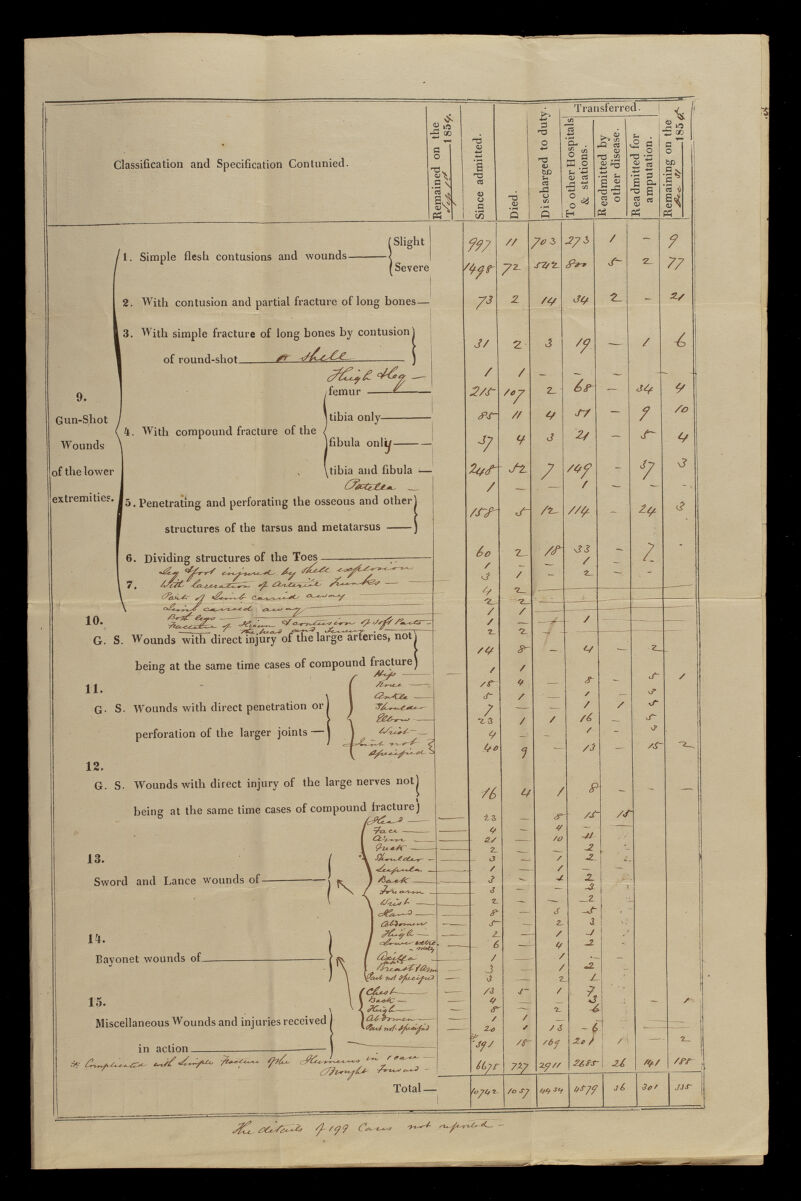 Classification and Specification Contunied.
Remained on the Sept 1st 1854
Since admitted.
Died.
Discharged to duty.
Transferred.
To other Hospitals & stations.
Readmitted by other disease.
Readmitted for amputation.
Remaining on the Dec 31 1854
9.
Gun-Shot
Wounds
of the lower
extremities.
1. Simple flesh contusions and wounds
Slight 997 11 703 273 1 - 9
Severe 1498 72 542 800 5 2 77
2. With contusion and partial fracture of long bones— 73 2 14 34 2 - 21
3. With simple fracture of long bones by contusion
of round-shot or shell 31 2 3 19 — 1 6
Thigh & leg — 1 1 - - - - -
4. With compound fracture of the
femur 215 107 2 68 — 34 4
tibia only 85 11 4 51 — 9 10
fibula only 37 4 3 21 — 5 4
tibia and fibula — 248 52 7 149 - 37 3
Patella — 1 — — 1 — — -
5. Penetrating and perforating the osseous and other
structures of the tarsus and metatarsus 158 5 12 114 — 24 3
6. Dividing structures of the Toes 60 2 18 33 — 7 -
Leg & foot injured by shell explosion 1 — — 1
7. With laceration of arterial trunks 3 1 — 2 - -
Part of Limb carried away 4 2
Limb carried away 2 2
Both legs 1 1
10.
G. S. Wounds with direct injury of the large arteries, not
being at the same time cases of compound fracture 14 8 — 4 — 2
11.
G. S. Wounds with direct penetration or
perforation of the larger joints —
Hip 1 1
Knee 18 4 — 8 - 5 1
Ankle 5 1 — 1 — 3
Shoulder 7 — — 1 1 5
Elbow 23 1 1 16 — 5
Wrist 4 - - 1 - 3
Joint not specified 40 9 — 13 — 15 2
12.
G. S. Wounds with direct injury of the large nerves not
being at the same time cases of compound fracture 16 4 1 8 — — —
13.
Sword and Lance wounds of
Head 23 — 8 15 15
Face 4 — 4 —
Arm 21 — 10 11
Neck 2 — — 2
Shoulder 3 — 1 2
Scapula 1 — 1 —
Back 3 — 1 2
Forearm 3 — — 3
Wrist 2 — — 2
Hand 8 — 3 5
Abdomen 5 — 2 3
14.
Bayonet wounds of
Thigh 2 — 1 1
Lower extremity 6 — 4 2
Axilla 1 — 1 —
Breast & Arm 3 — 1 2
Part not specified 3 — 2 1
15.
Miscellaneous Wounds and injuries received
in action
Chest 13 5 1 7
Back 4 — — 3 — — 1
Thigh 8 — 2 6
Abdomen 1 1 —
Part not specified 20 1 13 6
391 18 169 201 1 — 2
Complicated with Simple fracture of the Humerus in 1 case
Brought forward 6675 727 2911 2685 26 141 188
Total — 10742 1057 4434 4579 36 301 335
The details of 199 Cases not reported —